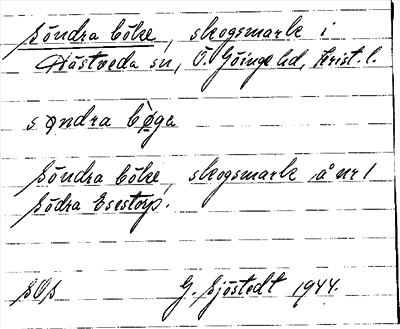 Söndra böke, skogsmark i
Hästveda sn, Ö. Göinge hd, Krist. l.
søndra bøga
Söndra böke, skogsmark å nr 1
Södra Esestorp.
SOS G. Sjöstedt 1944.